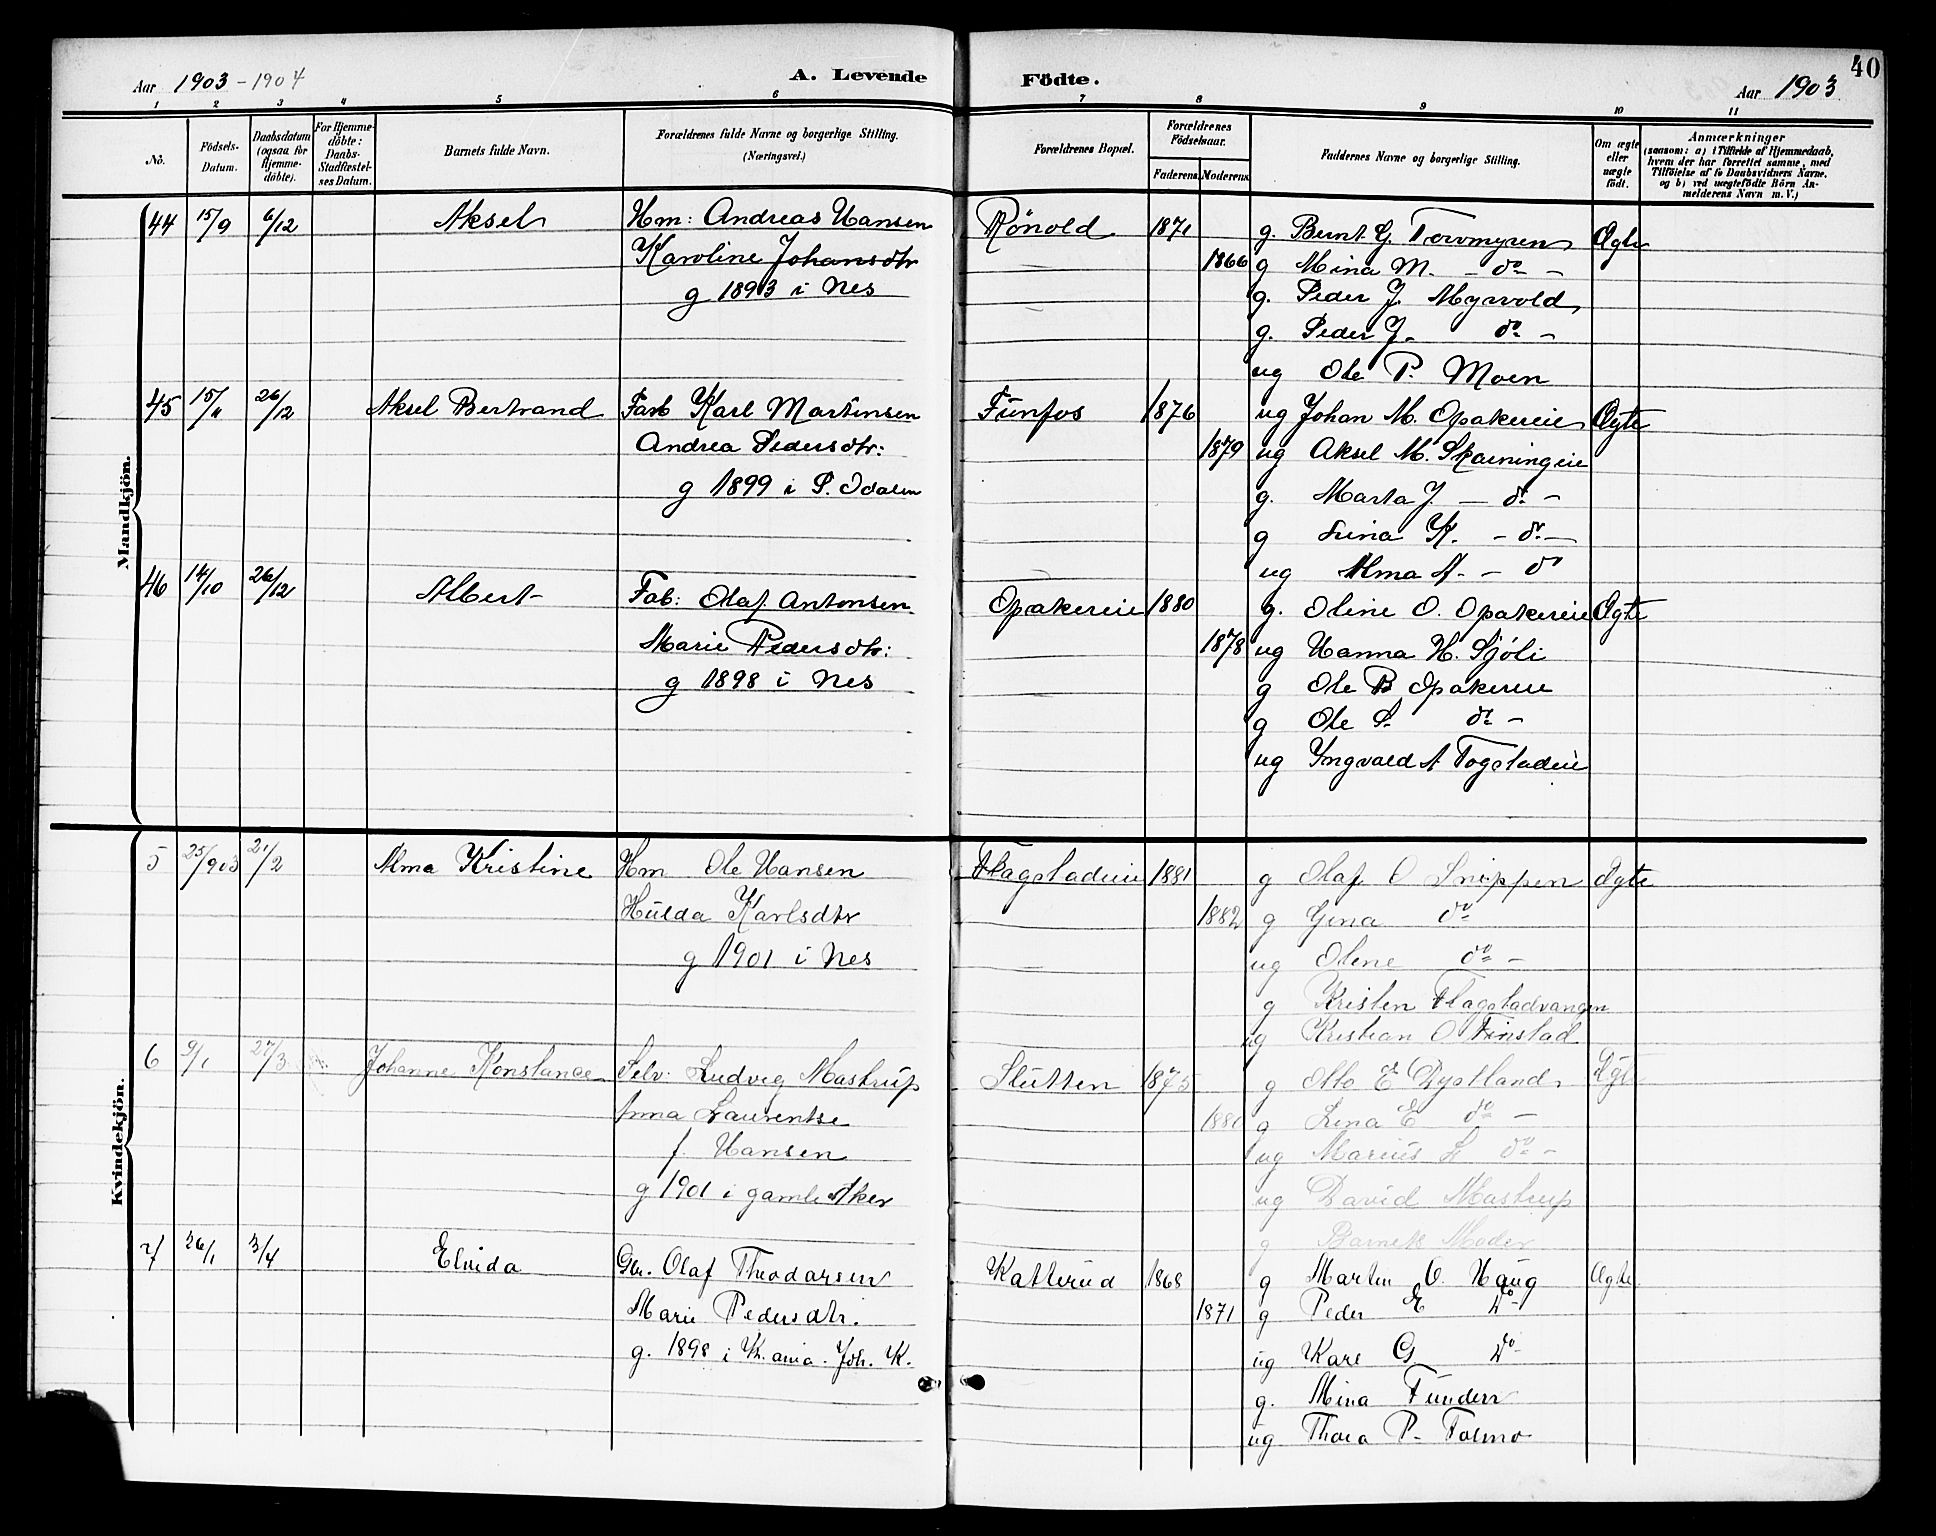 Aar 1903 - 1904 A. Levende Födte. Aar 1903 40
1 2 3 4 5 6 7 8 9 10 11
No. Födsels-Datum. Daabsdatum (ogsaa for Hjemme-döbte). For Hjemme-döbte: Daabs-Stadfæstel-ses Datum. Barnets fulde Navn. Forældrenes fulde Navne og borgerlige Stilling. (Næringsvei.) Forældrenes Bopæl. Forældrenes Födselsaar. Faderens Moderens. Faddernes Navne og borgerlige Stilling. Om ægte eller uægte födt. Anmærkninger (saasom: a) i Tilfælde af Hjemmedaab, hvem der har forrettet samme, med Tilföielse af to Daabsvidners Navne. og b) ved uægtefödte Börn An-melderens Navn m. V.)
Mandkjön.
44 15/9 6/12 Aksel Hm: Andreas Hansen Rönold 1871 g. Bernt G. Torvmyren Ægte
Karoline Johansdtr 1866 g Mina M. - do -
g 1893 i Nes g. Peder J. Myrvold
g. Peder J. do -
ug Ole P. Moen
45 15/11 26/12 Aksel Bertrand Fab Karl Martinsen Funfos 1876 ug Johan M. Opakereie Ægte
Andrea Pedersdtr: 1879 ug Aksel M. Skarningeie
g 1899 i P. Odalen g. Marta J. - do -
g Lina K. - do -
ug Alma A. - do
46 14/10 26/12 Albert Fab: Olaf Antonsen Opakereie 1880 g. Oline O. Opakereie Ægte
Marie Pedersdtr: 1878 ug Hanna H. Sjöli
g 1898 i Nes g Ole B Opakereie
g Ole S. do -
ug Yngvald A Fogstadeie
Kvindekjön.
5 25/9 03 21/2 Alma Kristine Hm Ole Hansen Flagstadeie 1881 g Olaf O Snippen Ægte
Hulda Karlsdtr 1882 g Gina do
g 1901 i Nes ug Oline do -
g Kristen Flagstadvangen
ug Kristian O Finstad
6 9/1 27/3 Johanne Konstance Selv: Ludvig Mastrup Slutten 1875 g Otto E Dystland Ægte
Anna Laurentse 1880 g Lina E do -
f. Hansen ug Marius L do -
g 1901 i gamle Aker ug David Mastrup
g Barnets Moder
7 26/1 3/4 Elvida Gbr. Olaf Theodorsen Katterud 1868 g Martin O. Haug Ægte
Marie Pedersdtr. 1871 g Peder E do
g. 1898 i Kr.ania. Joh. K. ug Karl G do
g. Mina Funderr
ug Thora P. Tolmo